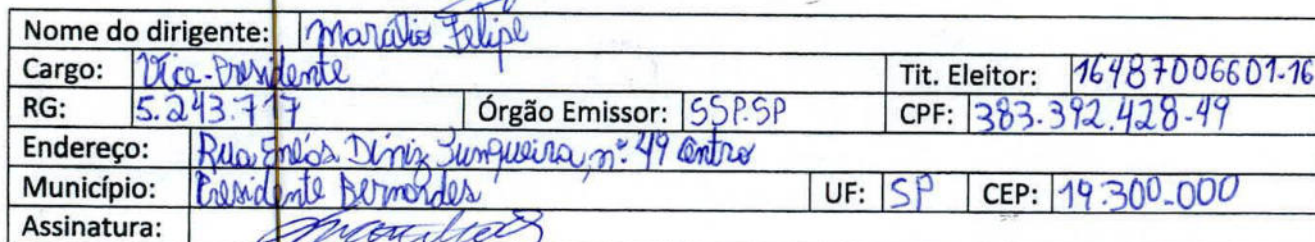 Nome do dirigente: Marcílio Felipe
Cargo: Vice-Presidente Tit. Eleitor: 16487006601-16
RG: 5.243.717 Órgão Emissor: SSP.SP CPF: 383.392.428-49
Endereço: Rua Diniz Junqueira, nº 49 centro
Município: Presidente Bernardes UF: SP CEP: 19.300-000
Assinatura: